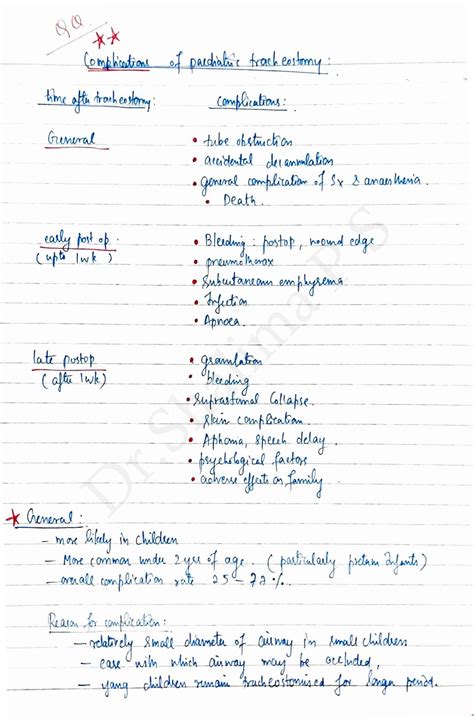 QQ
Complications of paediatric tracheostomy:
time after tracheostomy: complications:
General • tube obstruction
• accidental decannulation
• general complication of Sx & anaesthesia.
• Death.
early post op. • Bleeding: postop, wound edge
(upto 1wk) • pneumothorax
• Subcutaneous emphysema
• Infection
• Apnoea.
late postop • granulation
(after 1wk) • bleeding
• Suprastomal Collapse.
• Skin complication.
• Aphonia, speech delay.
• psychological factors
• adverse effects on family
* General:
– more likely in children
– More common under 2 yrs of age. (particularly preterm Infants)
– overall complication rate 25–77%.
Reason for complication:
– relatively small diameter of airway in small children
– ease with which airway may be occluded,
– yang children remain tracheostomised for longer period.
Dr. Shamima P S